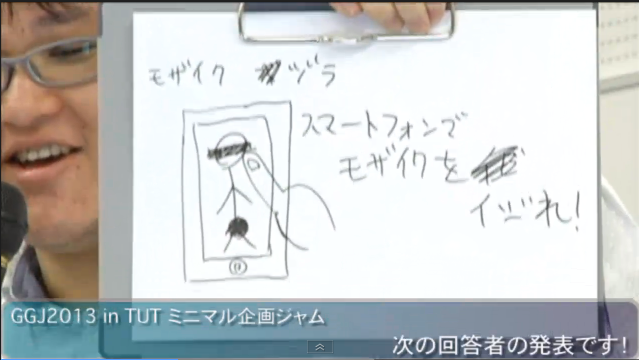 モザイク ヅラ
スマートフォンで
モザイクを
イジれ!
GGJ2013 in TUT ミニマル企画ジャム
次の回答者の発表です!